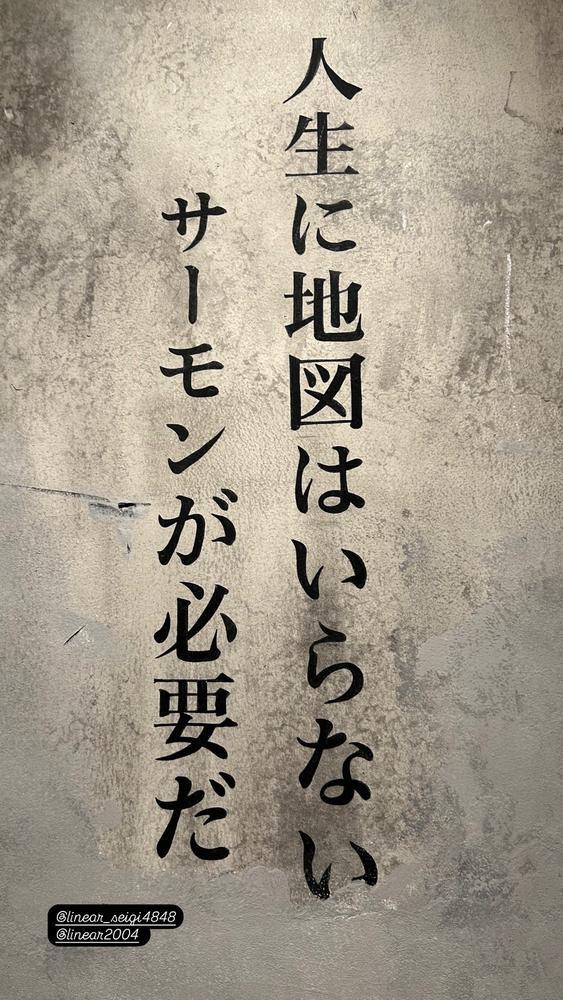 人生に地図はいらない
サーモンが必要だ
@linear_seigi4848
@linear2004